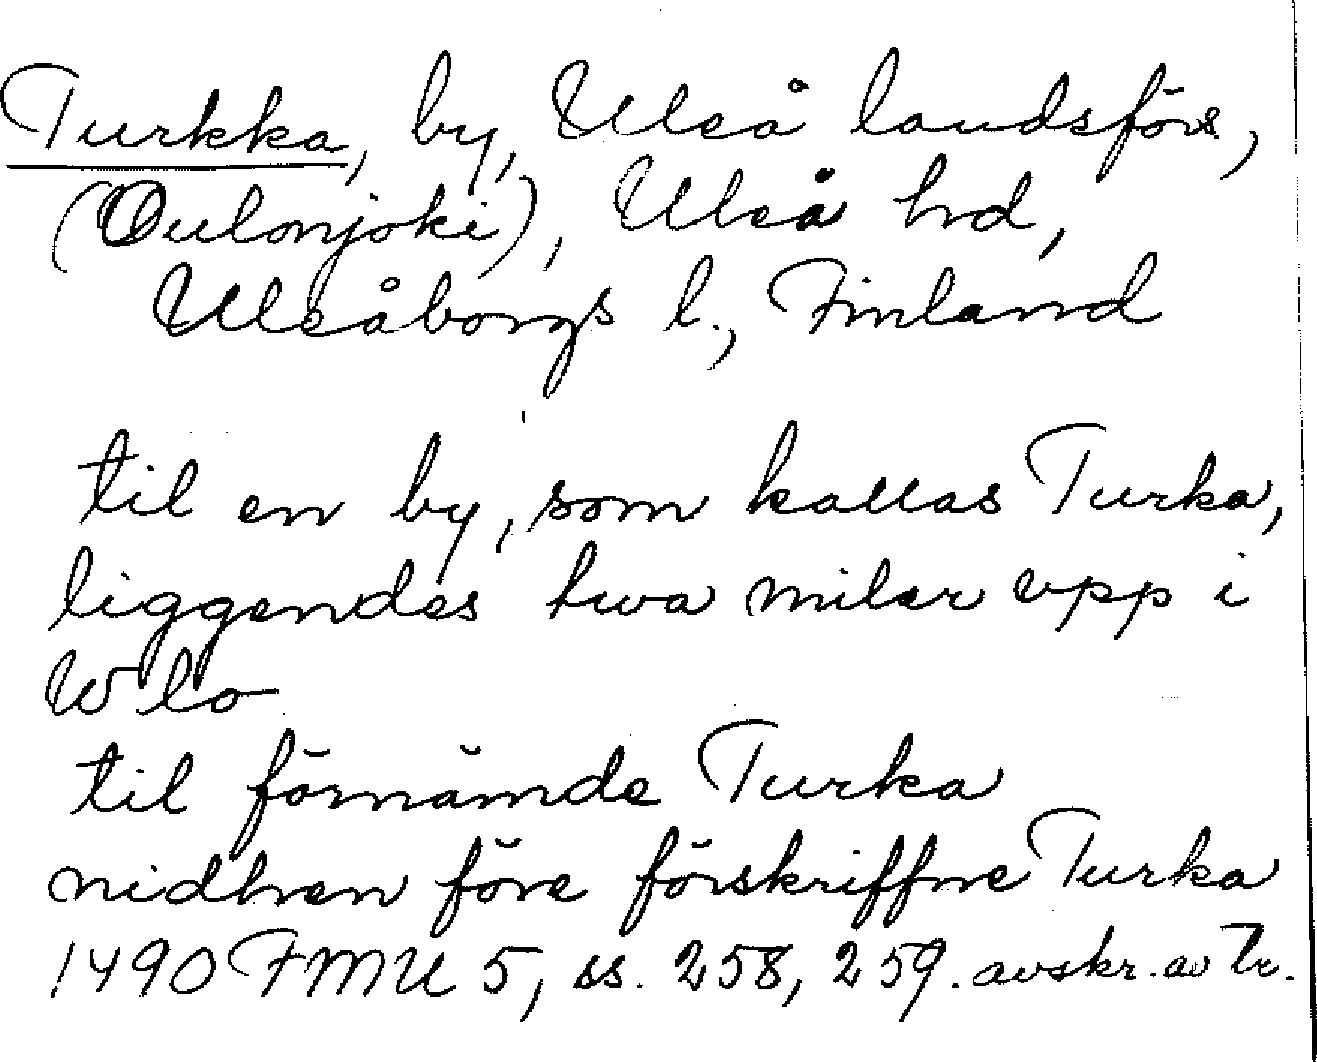 Turkka, by, Uleå landsförs.,
(Oulonjoki), Uleå hrd,
Uleåborgs l., Finland
til en by, som kallas Turka,
liggendes twa milar vpp i
Wlo
til förnämde Turka
nidhen före förskriffne Turka
1490 FMU 5, ss. 258, 259. avskr. av Tr.